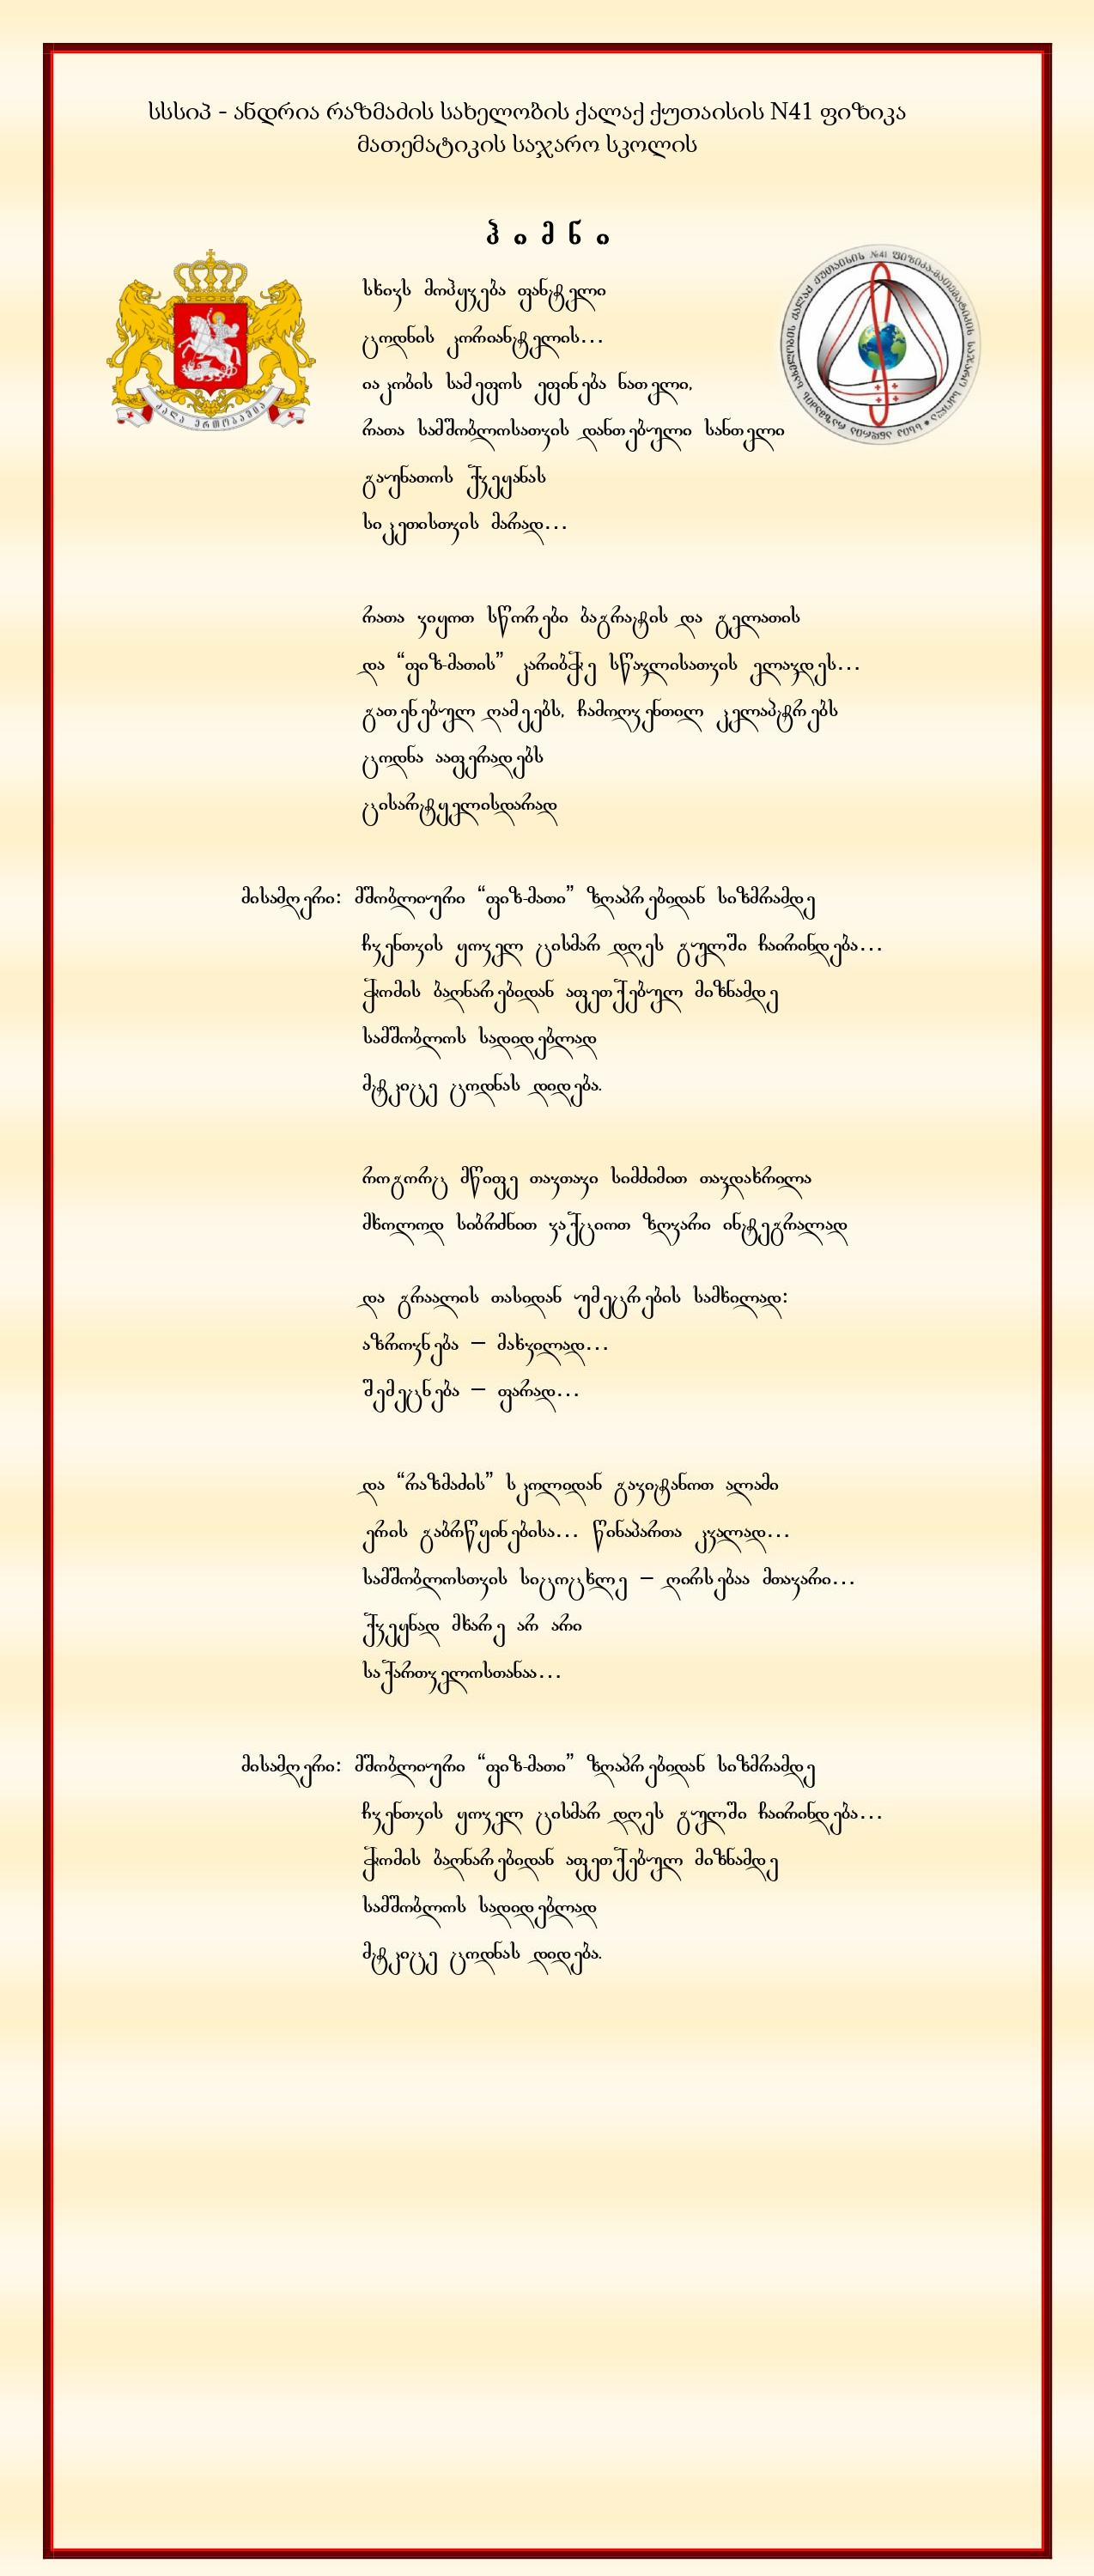 სსსიპ - ანდრია რაზმაძის სახელობის ქალაქ ქუთაისის N41 ფიზიკა
მათემატიკის საჯარო სკოლის
ჰ ი მ ნ ი
სხივს მოჰყვება ფანტელი
ცოდნის კორიანტელის...
იაკობის სამეფოს ეფინება ნათელი,
რათა სამშობლოსათვის დანთებული სანთელი
გაუნათოს ქვეყანას
სიკეთისთვის მარად...
ძალა ერთობაშია
რათა ვიყოთ სწორები ბაგრატის და გელათის
და “ფიზ-მათის” კარიბჭე სწავლისათვის ელავდეს...
გათენებულ ღამეებს, ჩამოღვენთილ კელაპტრებს
ცოდნა ააფერადებს
ცისარტყელისდარად
მისამღერი: მშობლიური “ფიზ-მათი” ზღაპრებიდან სიზმრამდე
ჩვენთვის ყოველ ცისმარ დღეს გულში ჩაირინდება...
ჭომის ბაღნარებიდან აფეთქებულ მიზნამდე
სამშობლოს სადიდებლად
მტკიცე ცოდნას დიდება.
როგორც მწიფე თავთავი სიმძიმით თავდახრილა
მხოლოდ სიბრძნით ვაქციოთ ზღვარი ინტეგრალად
და გრაალის თასიდან უმეცრების სამხილად:
აზროვნება – მახვილად...
შემეცნება – ფარად...
და “რაზმაძის” სკოლიდან გავიტანოთ ალამი
ერის გაბრწყინებისა... წინაპართა კვალად...
სამშობლოსთვის სიცოცხლე – ღირსებაა მთავარი...
ქვეყნად მხარე არ არი
საქართველოსთანაა...
მისამღერი: მშობლიური “ფიზ-მათი” ზღაპრებიდან სიზმრამდე
ჩვენთვის ყოველ ცისმარ დღეს გულში ჩაირინდება...
ჭომის ბაღნარებიდან აფეთქებულ მიზნამდე
სამშობლოს სადიდებლად
მტკიცე ცოდნას დიდება.